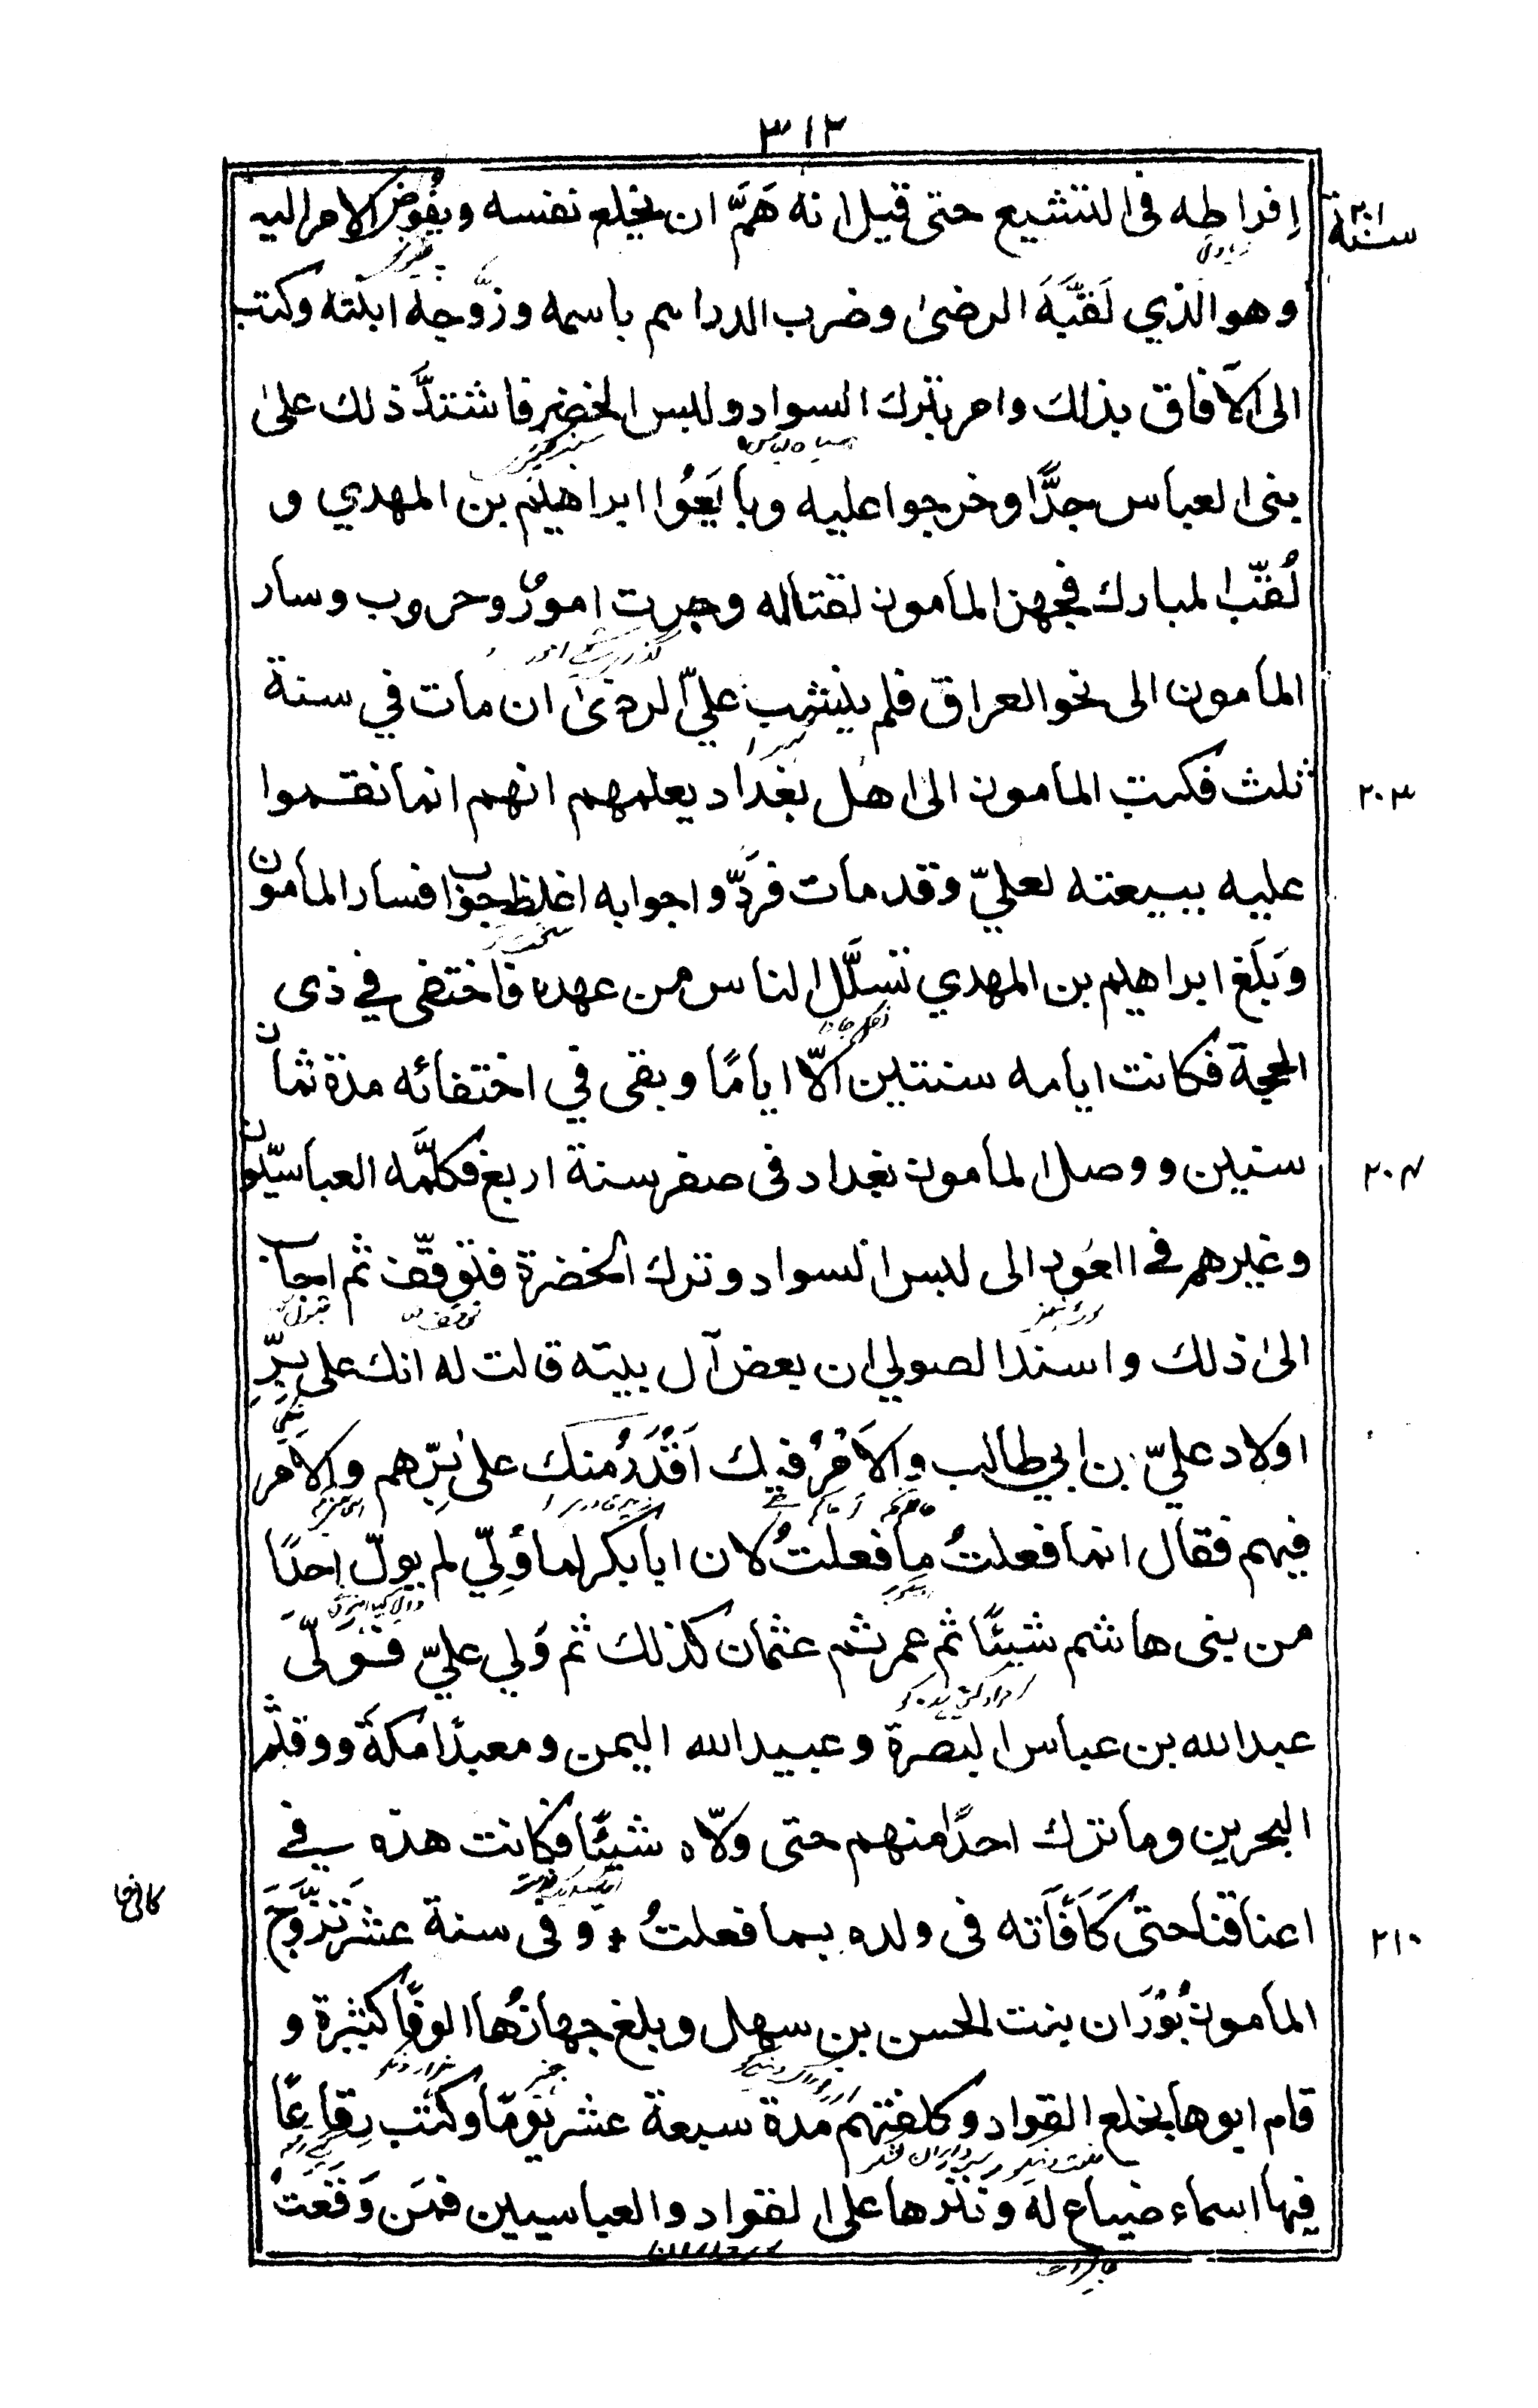 ٣١٢
إفراطه فى التشيع حتى قيل انه هَمَّ ان يخلع نفسه ويفُوض الامر اليه
سنة ٢٠١
وهو الذي لَقَّبَهُ الرضىٰ وضرب الدراهم باسمه وزوّجهُ ابنته وكتب
الى الآفاق بذلك وامر بترك السواد ولبس الخضر فاشتدَّ ذلك علىٰ
بنى العباس جدًّا وخرجوا عليه وبايَعُوا ابراهيم بن المهدي و
لُقّب المبارك فجهز المأمون لقتاله وجرت امورٌ وحروب وسار
المأمون الى نحو العراق فلم ينشب عليّ الرضىٰ ان مات في سنة
ثلث فكتب المأمون الىٰ اهل بغداد يعلمهم انهم انما نقموا
٢٠٣
عليه ببيعته لعليّ وقد مات فردّوا جوابه اغلظ جواب فسار المأمون
وبَلَغ ابراهيم بن المهدي تسلَّل الناس من عهده فاختفى في ذى
الحجة فكانت ايامه سنتين الّا ايامًا وبقى في اختفائه مدة ثمان
سنين ووصل المأمون بغداد فى صفر سنة اربع فكلَّمه العباسيّون
٢٠٤
وغيرهم في العَود الى لبس السواد وترك الخضرة فتوقّف ثم اجاب
الىٰ ذلك واسند الصولي ان بعض آل بيته قالت له انك على بِرِّ
اولاد عليّ بن ابي طالب والاَمْرُ فيك اَقْدَرُ منك علىٰ بِرّهم والامر
فيهم فقال انما فعلتُ ما فعلتُ لان ابابكر لما وُلِّي لم يولّ احدًا
من بنى هاشم شيئًا ثم عمر ثم عثمان كذلك ثم وُلي عليّ فولّى
عبد الله بن عباس البصرة وعبيد الله اليمن ومعبدًا مكة ووقثم
البحرين وما ترك احدًا منهم حتى ولّاه شيئًا فكانت هذه في
اعناقنا حتى كَافَأته فى ولده بما فعلتُ * وفى سنة عشر تزَوَّجَ
٢١٠
المأمون بُوْرَان بنت الحسن بن سهل وبلغ جهازُها الوفًا كثيرة و
قام ابوها بخلع القواد وكلفتهم مدة سبعة عشر يومًا وكتب رِقاعًا
فيها اسماء ضياع له ونثرها على القواد والعباسيين فمَن وَقَعَتْ